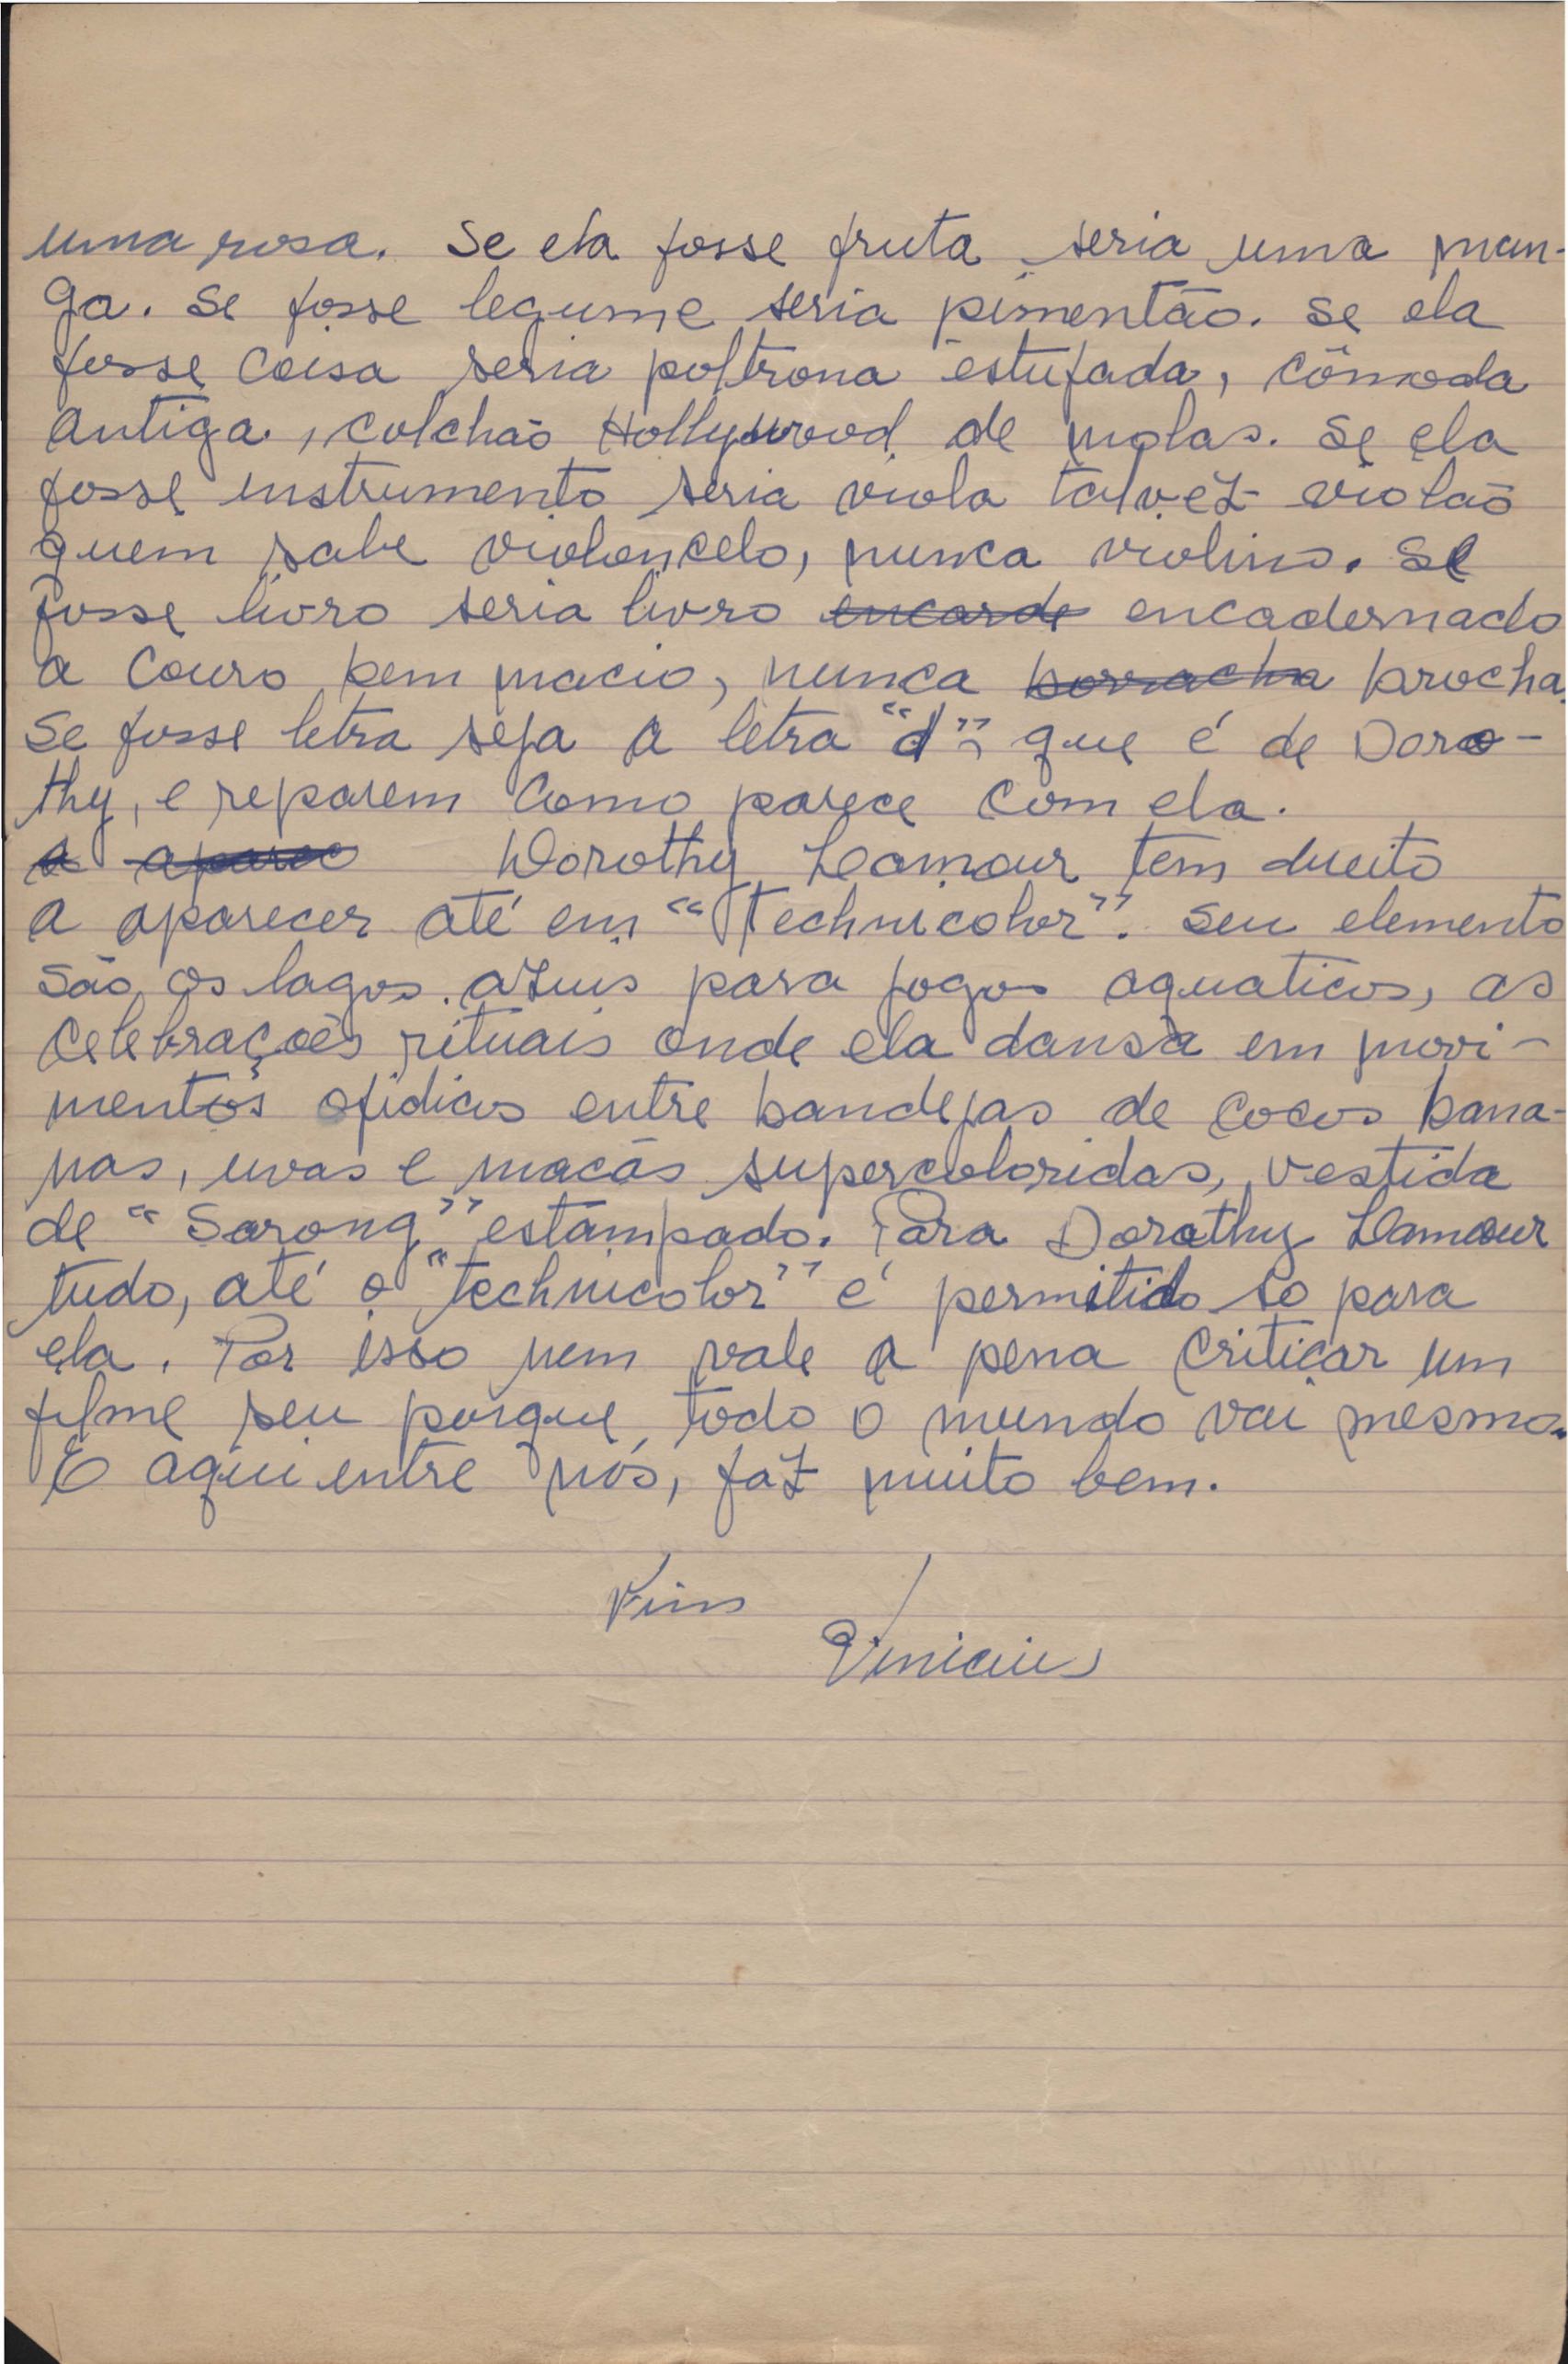 uma rosa. Se ela fosse fruta seria uma man-
ga. Se fosse legume seria pimentão. Se ela
fosse coisa seria poltrona estufada, cômoda
antiga, colchão Hollywood de molas. Se ela
fosse instrumento seria viola talvez violão
quem sabe violoncelo, nunca violino. Se
fosse livro seria livro encarde encadernado
a couro bem macio, nunca borracha brocha.
Se fosse letra seja a letra "d", que é de Doro-
thy, e reparem como parece com ela.
a aparec Dorothy Lamour tem direito
a aparecer até em "Technicolor". Seu elemento
são os lagos azuis para jogos aquaticos, as
celebrações rituais onde ela dansa em movi-
mentos ofidicos entre bandejas de cocos bana-
nas, uvas e macãs supercoloridas, vestida
de "Sarong" estampado. Para Dorothy Lamour
tudo, até o "technicolor" é permitido so para
ela. Por isso nem vale a pena criticar um
filme seu porque todo o mundo vai mesmo.
E aqui entre nós, faz muito bem.
Vinicius